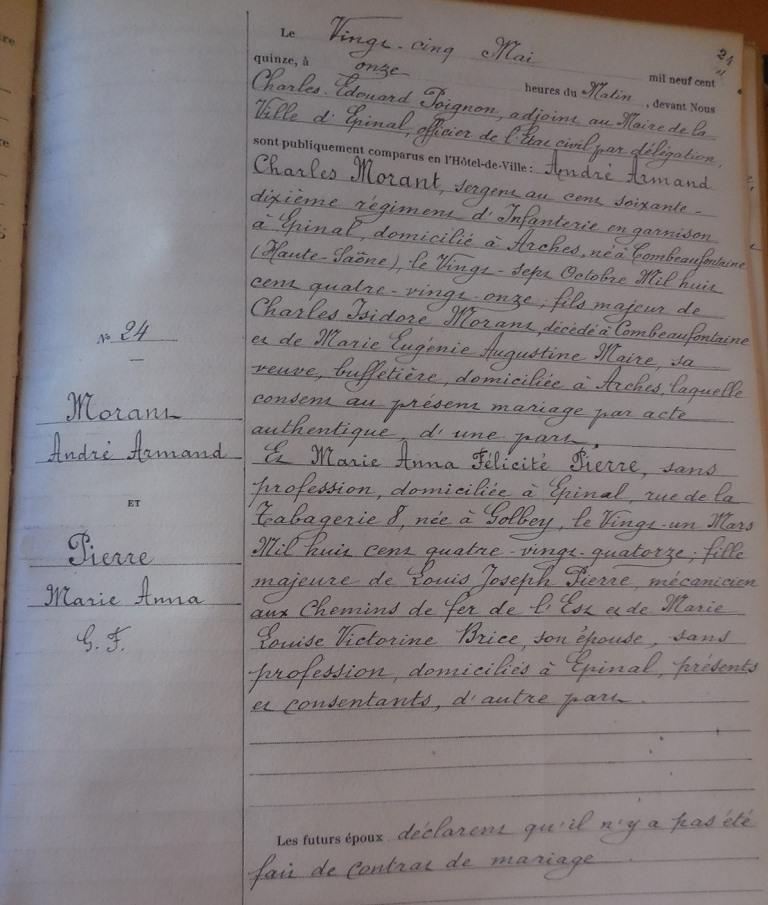 N° 24
Morant
André Armand
ET
Pierre
Marie Anna
G. F.
Le Vingt-cinq Mai mil neuf cent
quinze, à onze heures du Matin, devant Nous
Charles Edouard Poignon adjoint au Maire de la
Ville d'Epinal, officier de l'Etat civil par délégation,
sont publiquement comparus en l'Hôtel-de-Ville: André Armand
Charles Morant, sergent au cent soixante-
dixième régiment d'Infanterie en garnison
à Epinal, domicilié à Arches, né à Combeaufontaine
(Haute-Saône), le Vingt-sept Octobre Mil huit
cent quatre-vingt-onze, fils majeur de
Charles Isidore Morant, décédé à Combeaufontaine
et de Marie Eugénie Augustine Maire, sa
veuve, buffetière domiciliée à Arches, laquelle
consent au présent mariage par acte
authentique, d'une part
Et Marie Anna Félicité Pierre, sans
profession, domiciliée à Epinal, rue de la
8, née à Golbey, le Vingt-un Mars
Mil huit cent quatre-vingt-quatorze, fille
majeure de Louis Joseph Pierre, mécanicien
aux Chemins de fer de l'Est et de Marie
Louise Victorine Brice, son épouse, sans
profession, domiciliés à Epinal, présents
et consentants, d'autre part
Les futurs époux déclarent qu'il n'y a pas été
fait de contrat de mariage